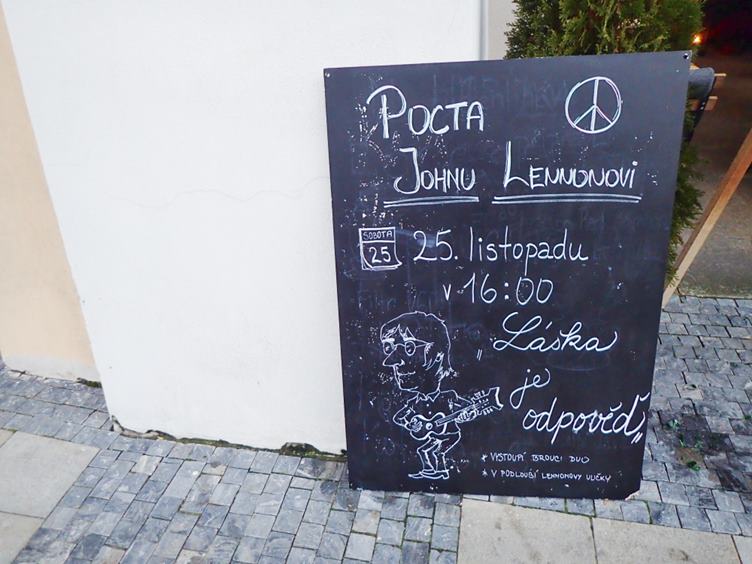 POCTA
JOHNU LENNONOVI
SOBOTA
25
25. listopadu
v 16:00
„Láska
je
odpověď„
* VYSTOUPÍ BROUCI DUO
* V PODLOUBÍ LENNONOVY ULIČKY